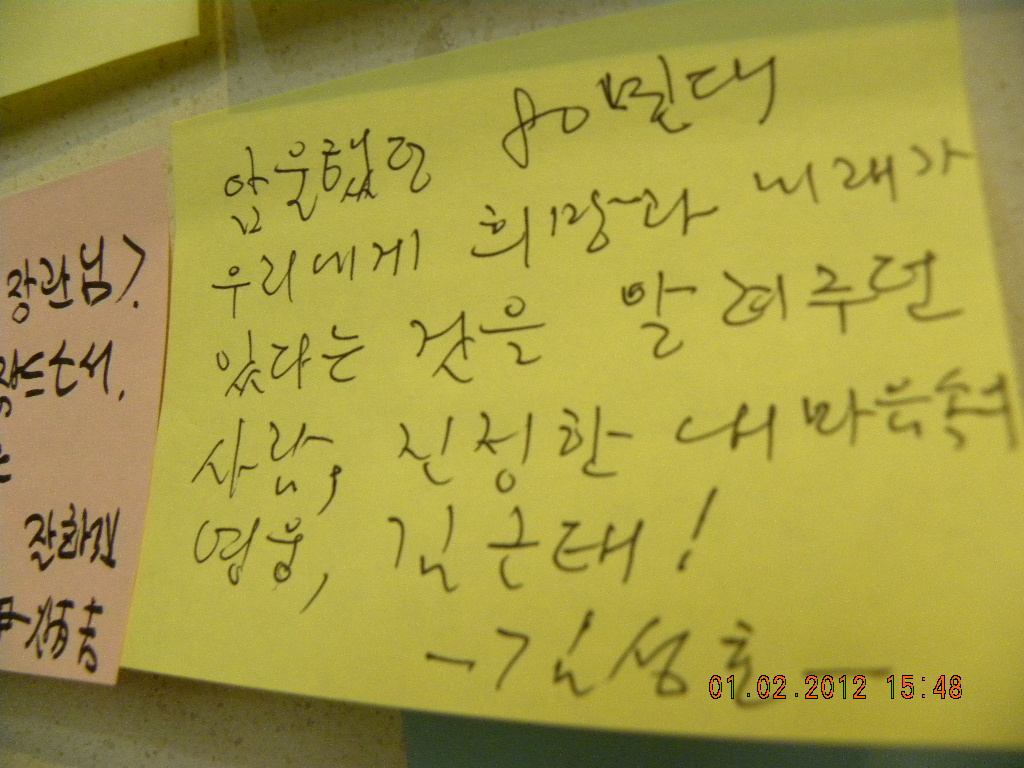 암울했던 80년대
우리에게 희망과 미래가
있다는 것을 알려주던
사람, 진정한 내 마음속의
영웅, 김근태!
- 김성호 -
장관님?
소서.
잘하겠
尹炳吉
01.02.2012 15:48